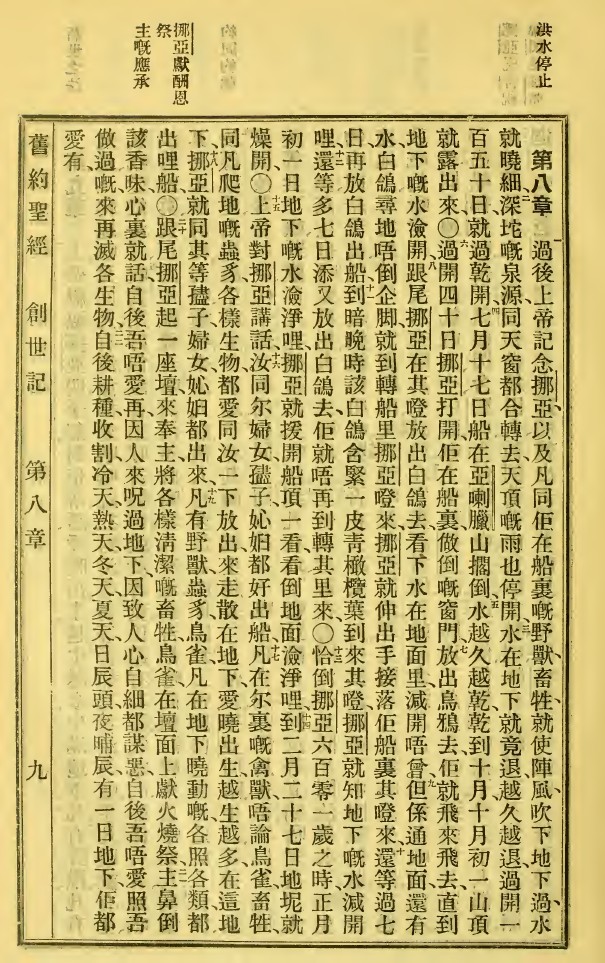 洪水停止
挪亞獻酬恩
祭
主嘅應承
第八章 一過後上帝記念挪亞以及凡同佢在船裏嘅野獸畜牲就使陣風吹下地下過水
就曉細二深坨嘅泉源同天窗都合轉去天頂嘅雨也停開三水在地下就竟退越久越退過開一
百五十日就過乾開四七月十七日船在亞喇臘山擱倒五水越久越乾乾到十月十月初一山頂
就露出來〇六過開四十日挪亞打開佢在船裏做倒嘅窗門七放出烏鴉去佢就飛來飛去直到
地下嘅水湌開八跟尾挪亞在其嶝放出白鴿去看下水在地面里減開唔曾九但係通地面還有
水白鴿尋地唔倒企脚就到轉船里挪亞嶝來挪亞就伸出手接落佢船裏其嶝來十還等過七
日再放白鴿出船十一到暗晚時該白鴿含緊一皮靑橄欖葉到來其嶝挪亞就知地下嘅水減開
哩十二還等多七日添又放出白鴿去佢就唔再到轉其里來〇十三恰倒挪亞六百零一歲之時正月
初一日地下嘅水湌淨哩挪亞就援開船頂一看看倒地面湌淨哩十四到二月二十七日地坭就
燥開〇十五上帝對挪亞講話十六汝同尔婦女孻子妣妇都好出船十七凡在尔裏嘅禽獸唔論鳥雀畜牲
同凡爬地嘅蟲豸各樣生物都愛同汝一下放出來走散在地下愛曉出生越生越多在這地
下十八挪亞就同其等孻子婦女妣妇都出來十九凡有野獸蟲豸鳥雀凡在地下曉動嘅各照各類都
出哩船〇二十跟尾挪亞起一座壇來奉主將各樣淸潔嘅畜牲鳥雀在壇面上獻火燒祭二一主鼻倒
該香味心裏就話自後吾唔愛再因人來呪過地下因致人心自細都謀惡自後吾唔愛照吾
做過嘅來再滅各生物二二自後耕種收割冷天熱天冬天夏天日辰頭夜晡辰有一日地下佢都
愛有
舊約聖經 創世記 第八章 九